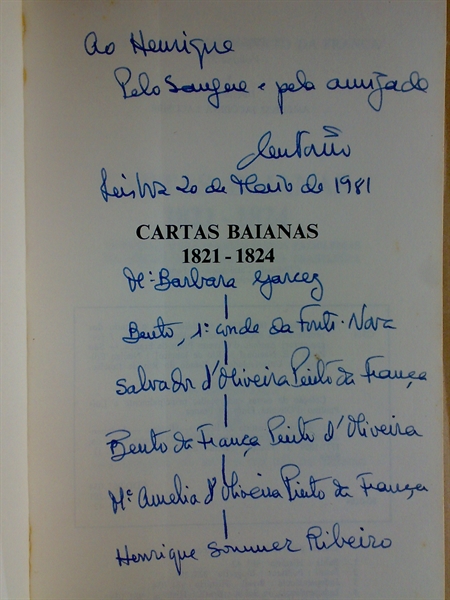 Ao Henrique
Pelo Sangue e pela amizade
António
Lisboa 20 de Maio de 1981
CARTAS BAIANAS
1821 - 1824
Mª Barbara Garcez
Bento, 1º conde da Fonte-Nova
Salvador d'Oliveira Pinto da França
Bento da França Pinto d'Oliveira
Mª Amelia d'Oliveira Pinto da França
Henrique Sommer Ribeiro